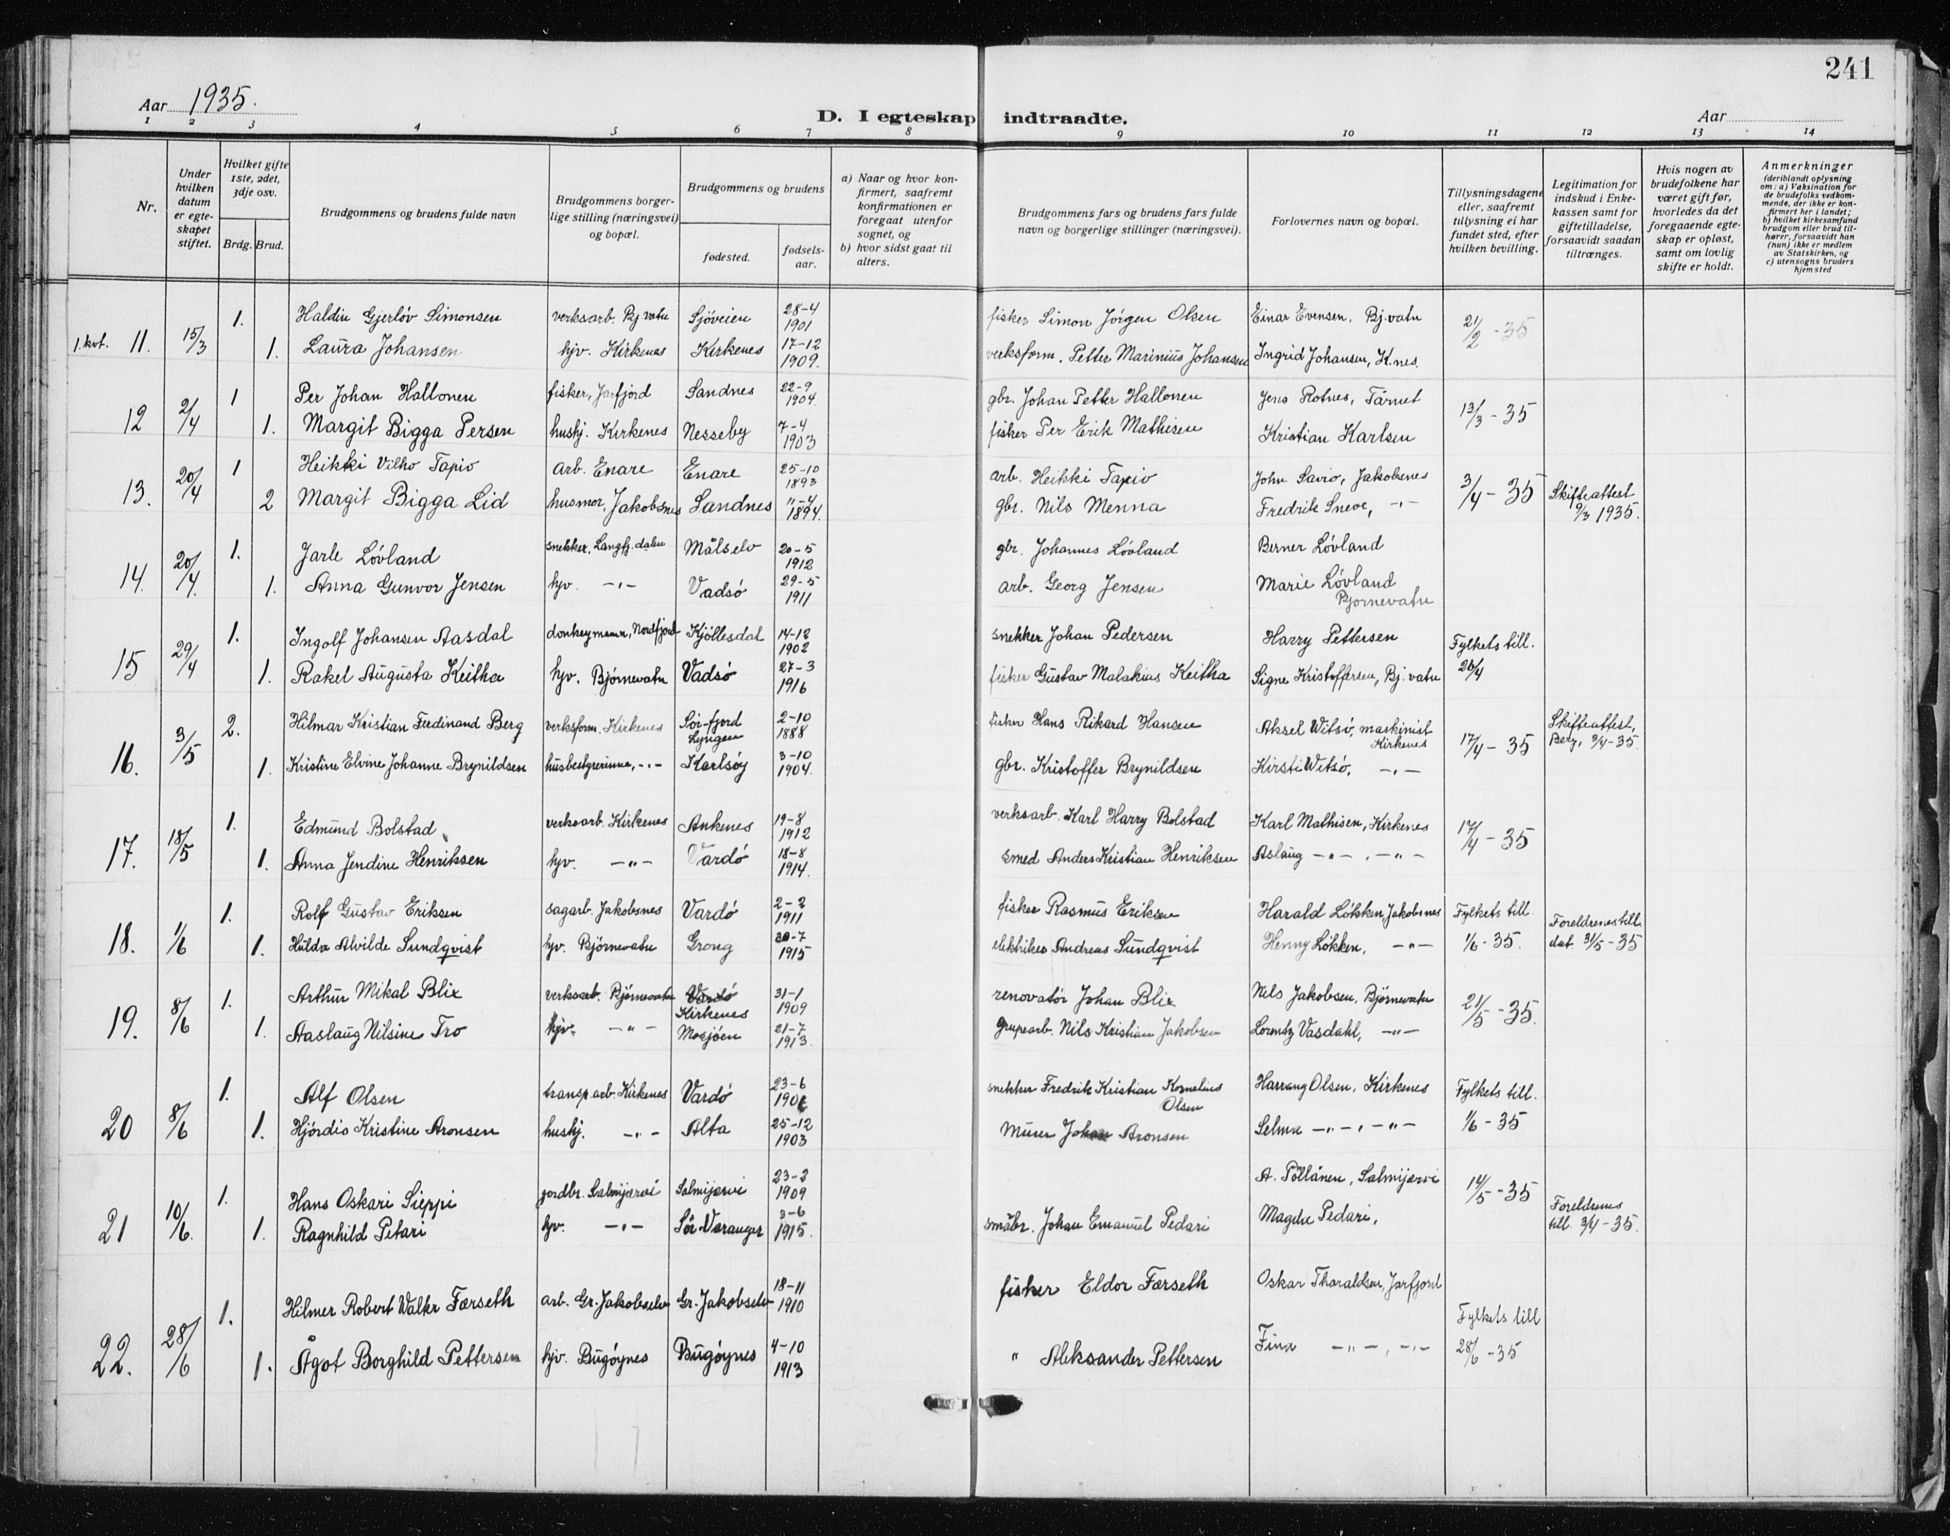 241
Aar 1935.
D. I egteskap indtraadte.
Aar
1 2 3 4 5 6 7 8 9 10 11 12 13 14
Nr.
Under hvilken datum er egteskapet stiftet.
Hvilket gifte 1ste, 2det, 3dje osv.
Brdg. Brud.
Brudgommens og brudens fulde navn
Brudgommens borgerlige stilling (næringsvei) og bopæl.
Brudgommens og brudens
fødested.
fødselsaar.
a) Naar og hvor konfirmert, saafremt konfirmationen er foregaat utenfor sognet, og
b) hvor sidst gaat til alters.
Brudgommens fars og brudens fars fulde navn og borgerlige stillinger (næringsvei).
Forlovernes navn og bopæl.
Tillysningsdagene eller, saafremt tillysning ei har fundet sted, efter hvilken bevilling.
Legitimation for indskud i Enkekassen samt for giftetilladelse, forsaavidt saadan tiltrænges.
Hvis nogen av brudefolkene har været gift før, hvorledes da det foregaaende egteskap er opløst, samt om lovlig skifte er holdt.
Anmerkninger
(deriblandt oplysning om: a) Vaksination for de brudefolks vedkommende, der ikke er konfirmert her i landet; b) hvilket kirkesamfund brudgom eller brud tilhører, forsaavidt han (hun) ikke er medlem av Statskirken, og c) utensogns bruders hjemsted
1.kvt. 11. 15/3 1. Haldin Gjerløv Simonsen verksarb. Bj.vatn Sjøveien 28-4 1901 fisker Simon Jørgen Olsen Einar Evensen, Bj.vatn 21/2-35
1. Laura Johansen hjv. Kirkenes Kirkenes 17-12 1909. verksform. Petter Marinius Johansen Ingrid Johansen, K.nes.
12 2/4 1 Per Johan Hallonen fisker, Jarfjord Sandnes 22-9 1904. gbr. Johan Petter Hallonen Jens Rotnes, Tårnet 13/3-35
1. Margit Bigga Persen hushj. Kirkenes Nesseby 7-4 1903 fisker Per Erik Mathisen Kristian Karlsen
13. 20/4 1 Heikki Vilho Tapio arb. Enare Enare 25-10 1893 arb. Heikki Tapio John Savio, Jakobsnes 3/4-35 Skifteattest
2 Margit Bigga Lid husmor, Jakobsnes Sandnes 11-4 1894. gbr. Nils Menna Fredrik Sneve, -"- 9/3 1935.
14. 20/4. 1. Jarle Løvland snekker, Langfj.dalen Målselv 20-5 1912 gbr. Johannes Løvland Berner Løvland
1. Anna Gunvor Jensen hjv. -"- Vadsø 29-5 1911 arb. Georg Jensen Marie Løvland Bjørnevatn
15 29/4 1. Ingolf Johansen Aasdal donkeymann, Nordfjord Kjøllesdal 14-12 1902 snekker Johan Pedersen Harry Pettersen Fylkets till.
1. Rakel Augusta Keitha hjv. Bjørnevatn Vadsø 27-3 1916 fisker Gustav Malakius Keitha Signe Kristoffersen, Bj.vatn 20/4
16. 3/5 2. Hilmar Kristian Ferdinand Berg verksform. Kirkenes Sør-fjord Lyngen 2-10 1888 fisker Hans Rikard Hansen Aksel Witsø, maskinist Kirkenes 17/4-35 Skifteattest, Berg, 9/4-35.
1. Kristine Elvine Johanne Brynildsen husbestyrerinne, -"- Karlsøy 3-10 1904. gbr. Kristoffer Brynildsen Kirsti Witsø, -"-
17. 18/5 1. Edmund Bolstad verksarb. Kirkenes Ankenes 19-8 1912 verksarb. Karl Harry Bolstad Karl Mathisen, Kirkenes 17/4-35
1. Anna Jendine Henriksen hjv. -"- Vardø 18-8 1914. smed Anders Kristian Henriksen Aslaug -"-, -"-
18. 1/6 1. Rolf Gustav Eriksen sagarb. Jakobsnes Vardø 2-2 1911 fisker Rasmus Eriksen Harald Løkken, Jakobsnes Fylkets till Foreldrenes till.
1. Hulda Alvilde Sundqvist hjv. Bjørnevatn Grong 20-7 1915 elektriker Andreas Sundqvist Henny Løkken, -"- 1/6-35. dat 31/5-35
19. 8/6 1. Arthur Mikal Blix verksarb. Bjørnevatn Vardø Kirkenes 31-1 1909 renovatør Johan Blix Nils Jakobsen, Bjørnevatn 21/5-35.
1. Aaslaug Nilsine Tro hjv. -"- Mosjøen 21-7 1913. grupearb. Nils Kristian Jakobsen Lorentz Vasdahl, -"-
20 8/6 1. Alf Olsen transp.arb. Kirkenes Vardø 23-6 snekker Fredrik Kristian Kornelius Olsen Harrang Olsen, Kirkenes Fylkets till.
1. Hjørdis Kristine Aronsen hushj. -"- Alta 25-12 1903 Murer Johan Aronsen Selma -"-, -"- 1/6-35
21 10/6. 1. Hans Oskari Sieppi jordbr. Salmijærvi Salmijærvi 23-2 1909 A. Pöllänen, Salmijærvi 14/5-35
1. Ragnhild Petari hjv. -"- Sør-Varanger 3-6 1915. småbr. Johan Emanuel Pedari Magda Pedari, Foreldrenes till. 3/4-35.
22. 28/6 1. Hilmer Robert Walter Færseth arb. Gr.Jakobselv Gr.Jakobselv 18-11 1910 fisker Eldor Færseth Oskar Tharaldsen, Jarfjord Fylkets till
1. Ågot Borghild Pettersen hjv. Bugøynes Bugøynes 4-10 1913 " Aleksander Pettersen Fina -"-, -"- 28/6-35